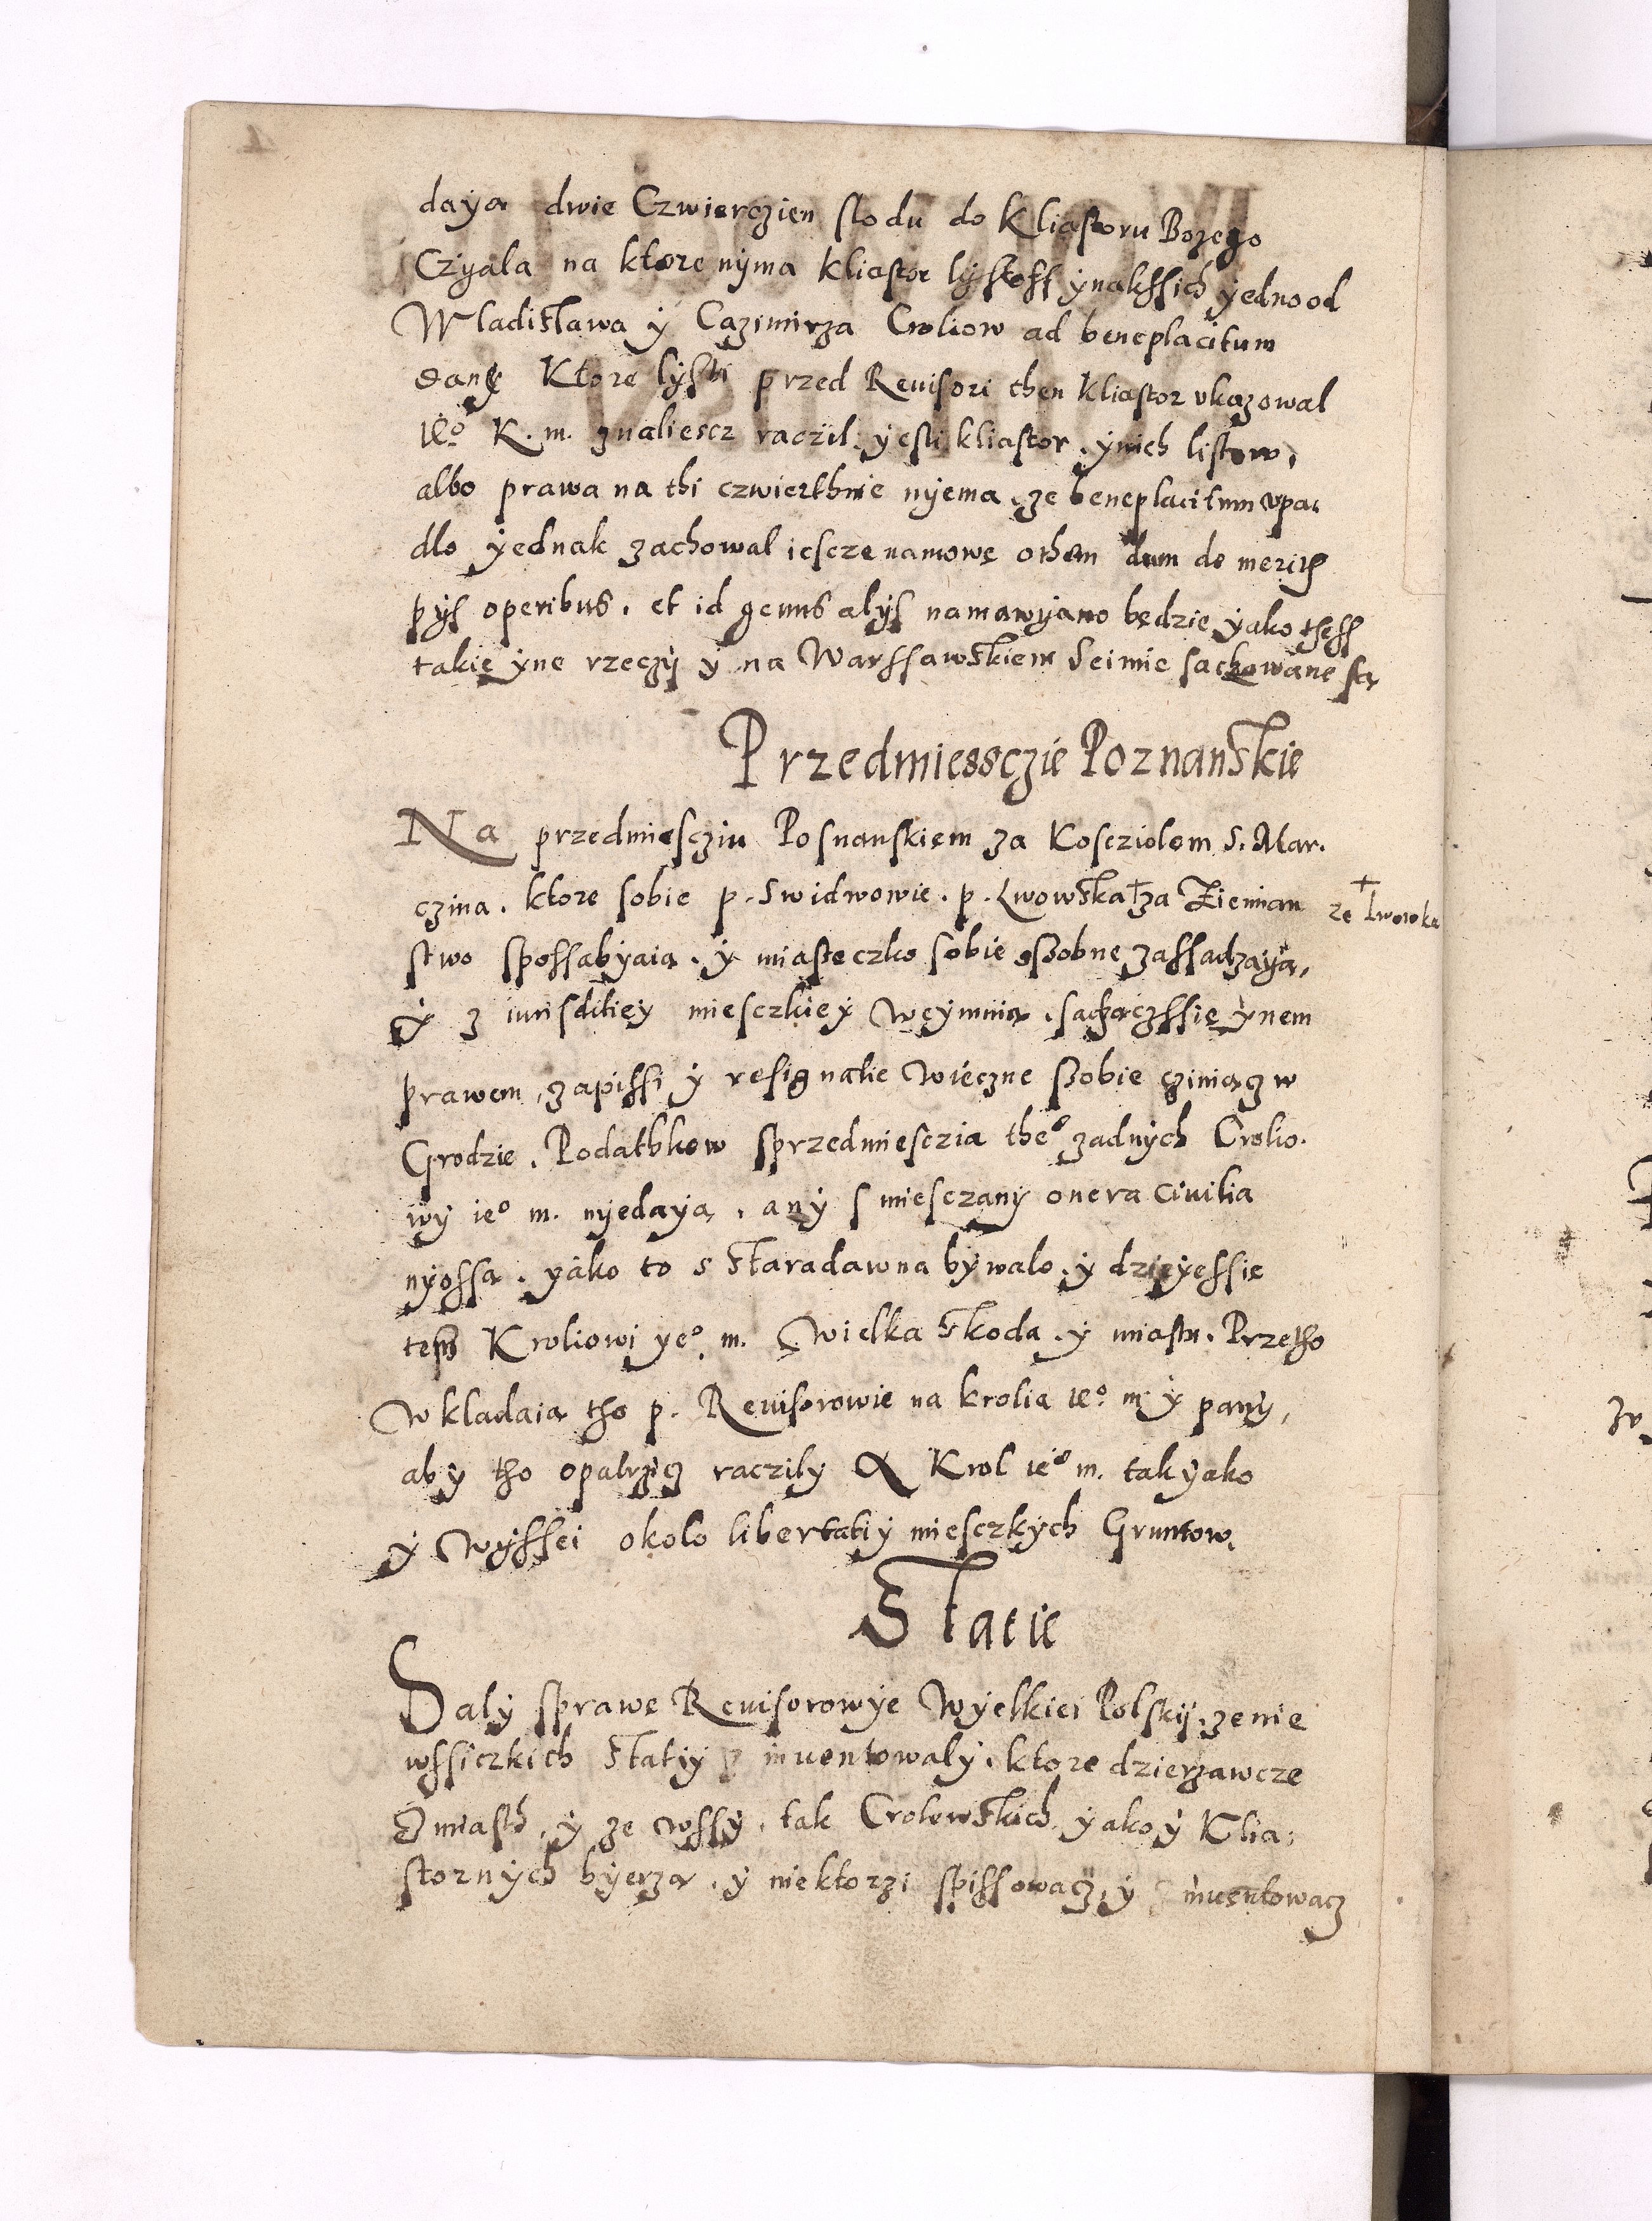 daya dwie Czwierczien slodu do Kliastoru Bozego
Czyala na ktore nyma kliastor lystoff ynakssich yedno od
Wladislawa y Cazimirza Croliow ad beneplacitum
dany Ktore lysti przed Reuisori then Kliastor vkazowal
ieº K. m. znaliescz raczil. yesli kliastor. ynich listow,
albo prawa na thi czwierthnie nyema. ze beneplacitum vpa.
dlo yednak zachowal iescze namowę othem dum de meritis
pys operibus. et id genus alys namawyano będzie yako thess
takie yne rzeczy y na Warssawskiem Seimie sachowane są
Przedmiessczie Poznanskie
Na przedmiescziu Posnanskiem za Kosciolem S. Mar.
czina. ktore sobie p. Swidwowie. p. Lwowska † za Ziemian † ze Lwowka
stwo sposabyaia. y miasteczko sobie osobne zassadzaya,
y z iurisditiey miesczkiey weymuia. sadzaczssie ynem
prawem, zapissi y resignatie wieczne sobie cziniącz w
Grodzie. Podathkow sprzedmiesczia theº zadnych Crolio.
wy ieº m. nyedaya, any s miesczany onera Civilia
nyossa. yako to s staradawna bywalo. y dzieyessie
tesz Kroliowi yeº. m. wielka skoda. y miastu. Przetho
wkladaia tho p. Reuisorowie na krolia ieº. m y pany,
aby tho opatrzicz raczily & Krol ieº m. tak yako
y wyssei okolo libertatiy miesczkych Gruntow.
Statie
Daly sprawe Reuisorowye Wyelkiei Polskij. ze nie
wssiczkich statiy inuentowaly. ktore dzierzawcze
Z miasth. y ze wssy. tak Crolowskich yako y Klia:
stornych byerza. y niektorzi spissowacz, y inuentowacz